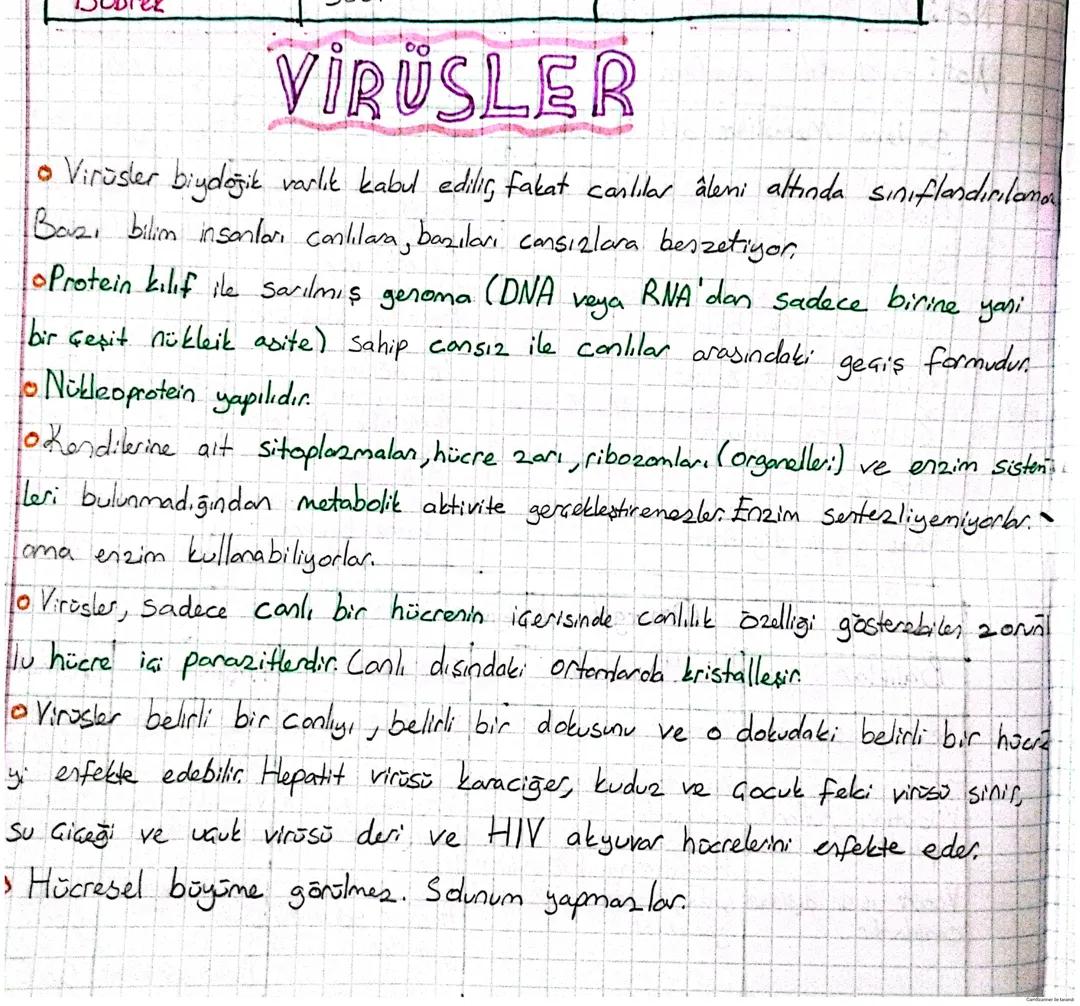 Böbrek
VİRÜSLER
Virüsler biyolojik varlık kabul edilir, fakat canlılar âlemi altında sınıflandırılamaz
Bazı bilim insanları canlılara, bazıları cansızlara benzetiyor.
Protein kılıf ile sarılmış genoma (DNA veya RNA'dan sadece birine yani
bir çeşit nükleik asite) sahip cansız ile canlılar arasındaki geçiş formudur.
Nükleoprotein yapılıdır.
Kendilerine ait sitoplazmaları, hücre zarı, ribozomları (organelleri) ve enzim sistem
leri bulunmadığından metabolik aktivite gerçekleştiremezler. Enzim sentezliyemiyorlar.
ama enzim kullanabiliyorlar.
Virüsler, sadece canlı bir hücrenin içerisinde canlılık özelliği gösterebilen zorun
lu hücre içi parazitlerdir. Canlı dışındaki ortamlarda kristalleşir.
Virüsler belirli bir canlıyı, belirli bir dokusunu ve o dokudaki belirli bir hücre
yi enfekte edebilir. Hepatit virüsü karaciğer, kuduz ve çocuk felci virüsü sinir,
su çiçeği ve uçuk virüsü deri ve HIV akyuvar hücrelerini enfekte eder.
Hücresel büyüme görülmez. Solunum yapmazlar.
CamScanner ile tarandı